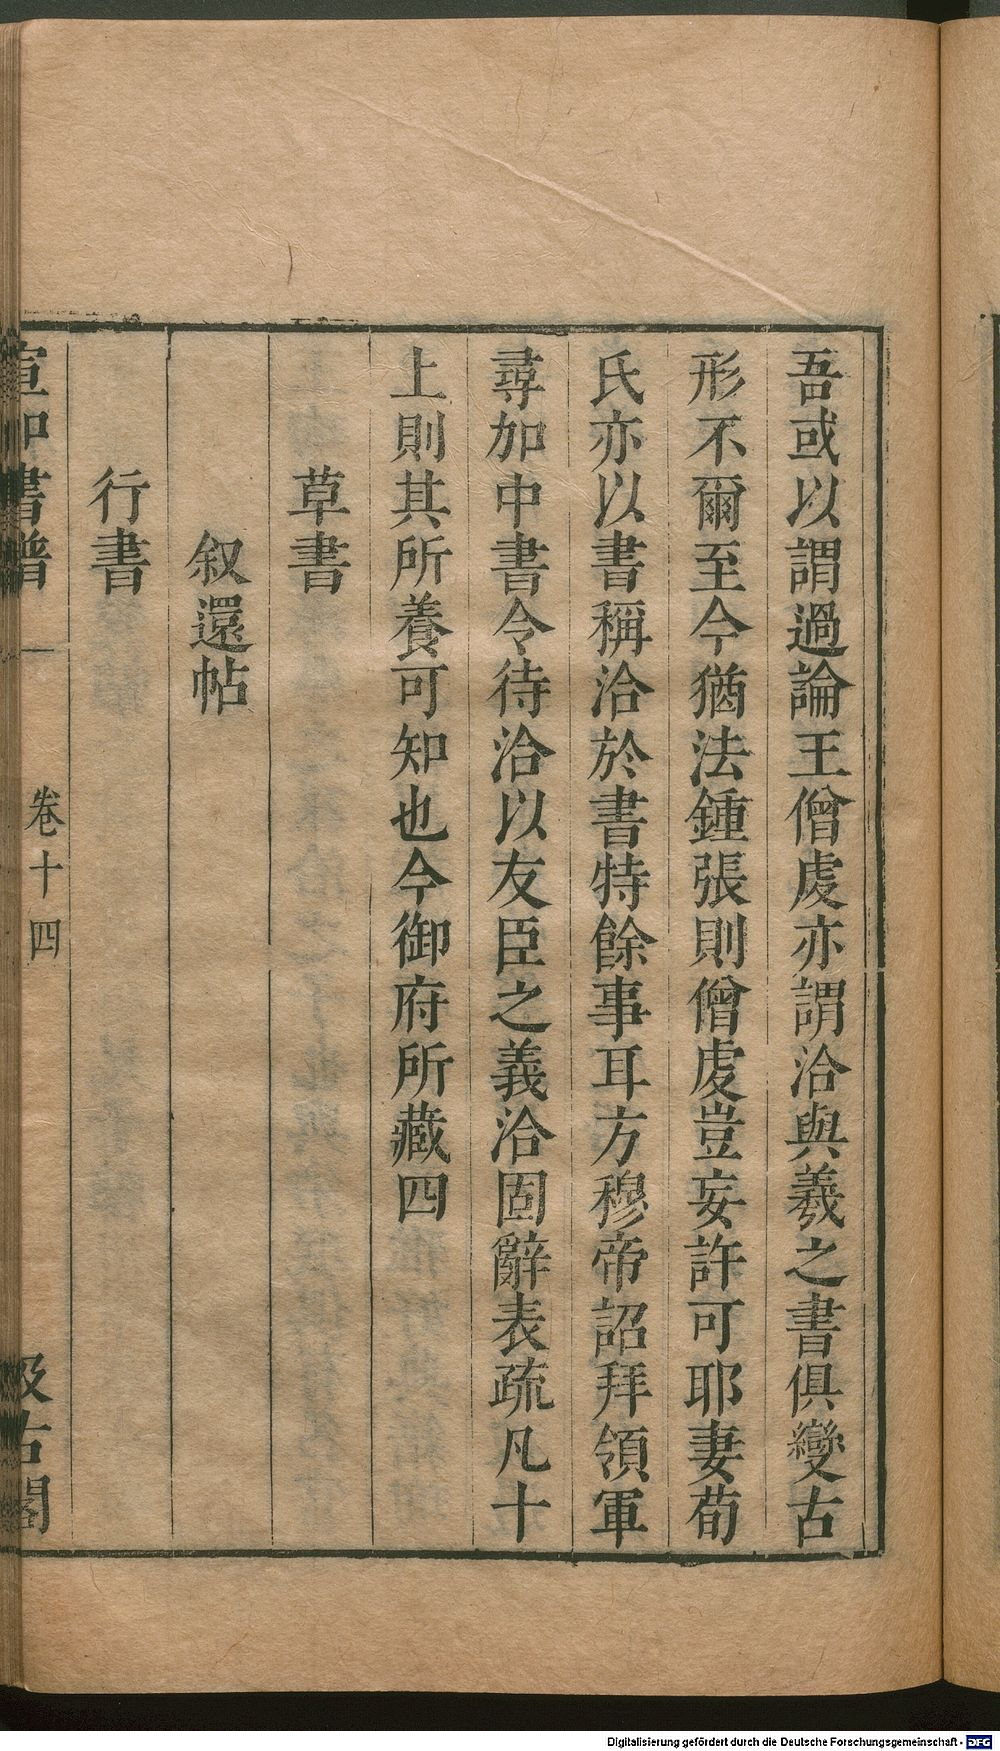 吾或以謂過論王僧虔亦謂洽與羲之書俱變古
形不爾至今猶法鍾張則僧虔豈妄許可耶妻荀
氏亦以書稱洽於書特餘事耳方穆帝詔拜領軍
尋加中書令待洽以友臣之義洽固辭表疏凡十
上則其所養可知也今御府所藏四
草書
叙還帖
行書
宣和書譜 卷十四 汲古閣
Digitalisierung gefördert durch die Deutsche Forschungsgemeinschaft - DFG